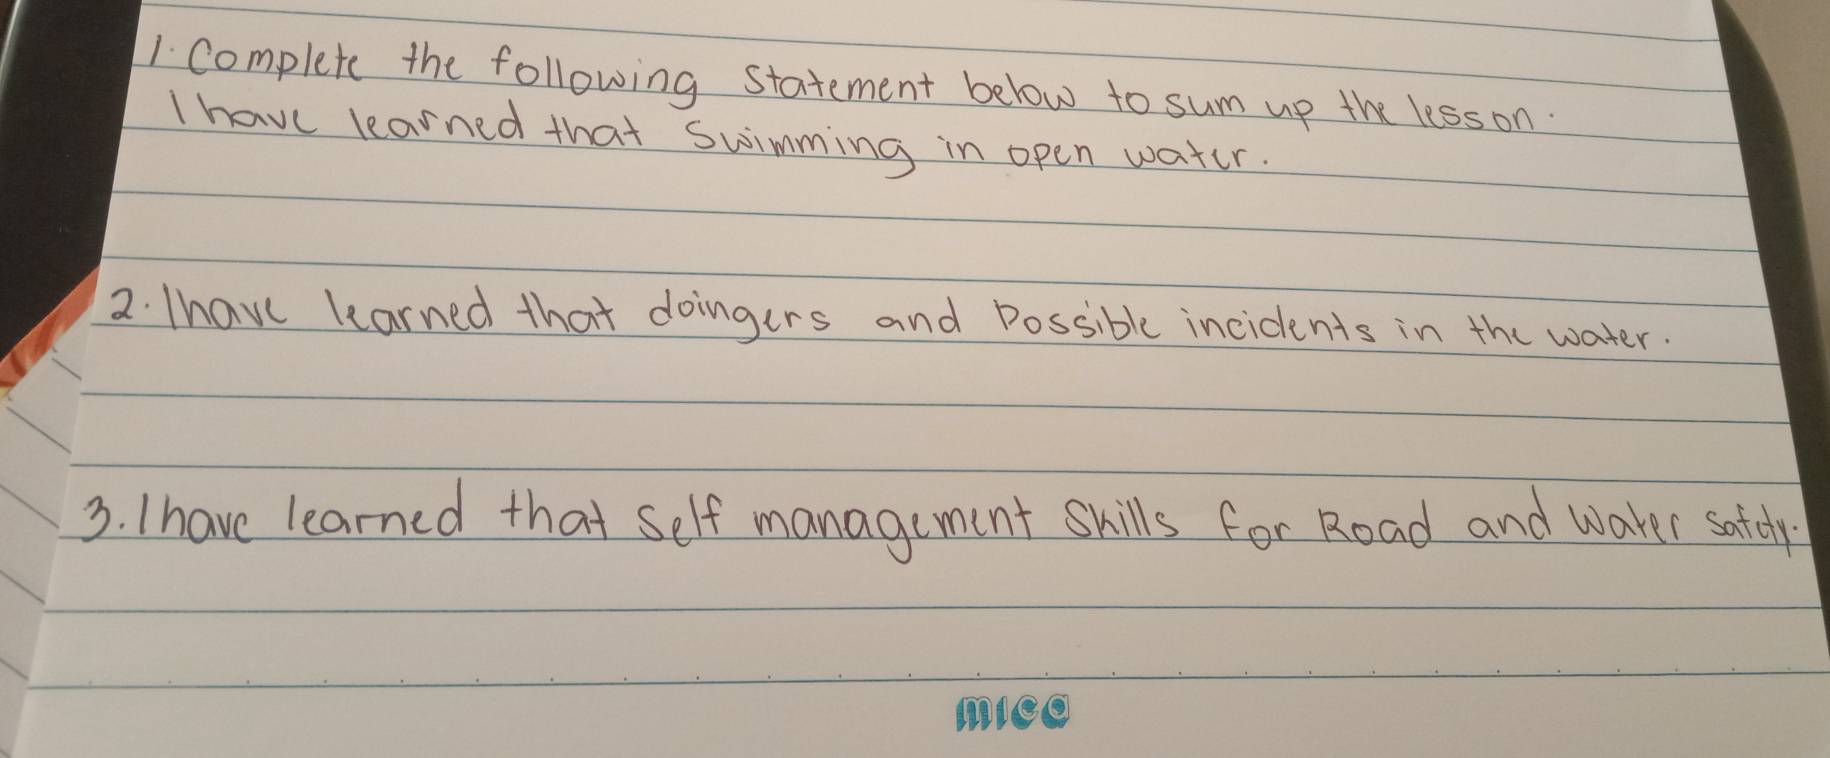 1. Complete the following Statement below to sum up the lesson.
I have learned that Swimming in open water.
2. I have learned that doingers and Possible incidents in the water.
3. I have learned that Self management Skills for Road and Water safety.
mica